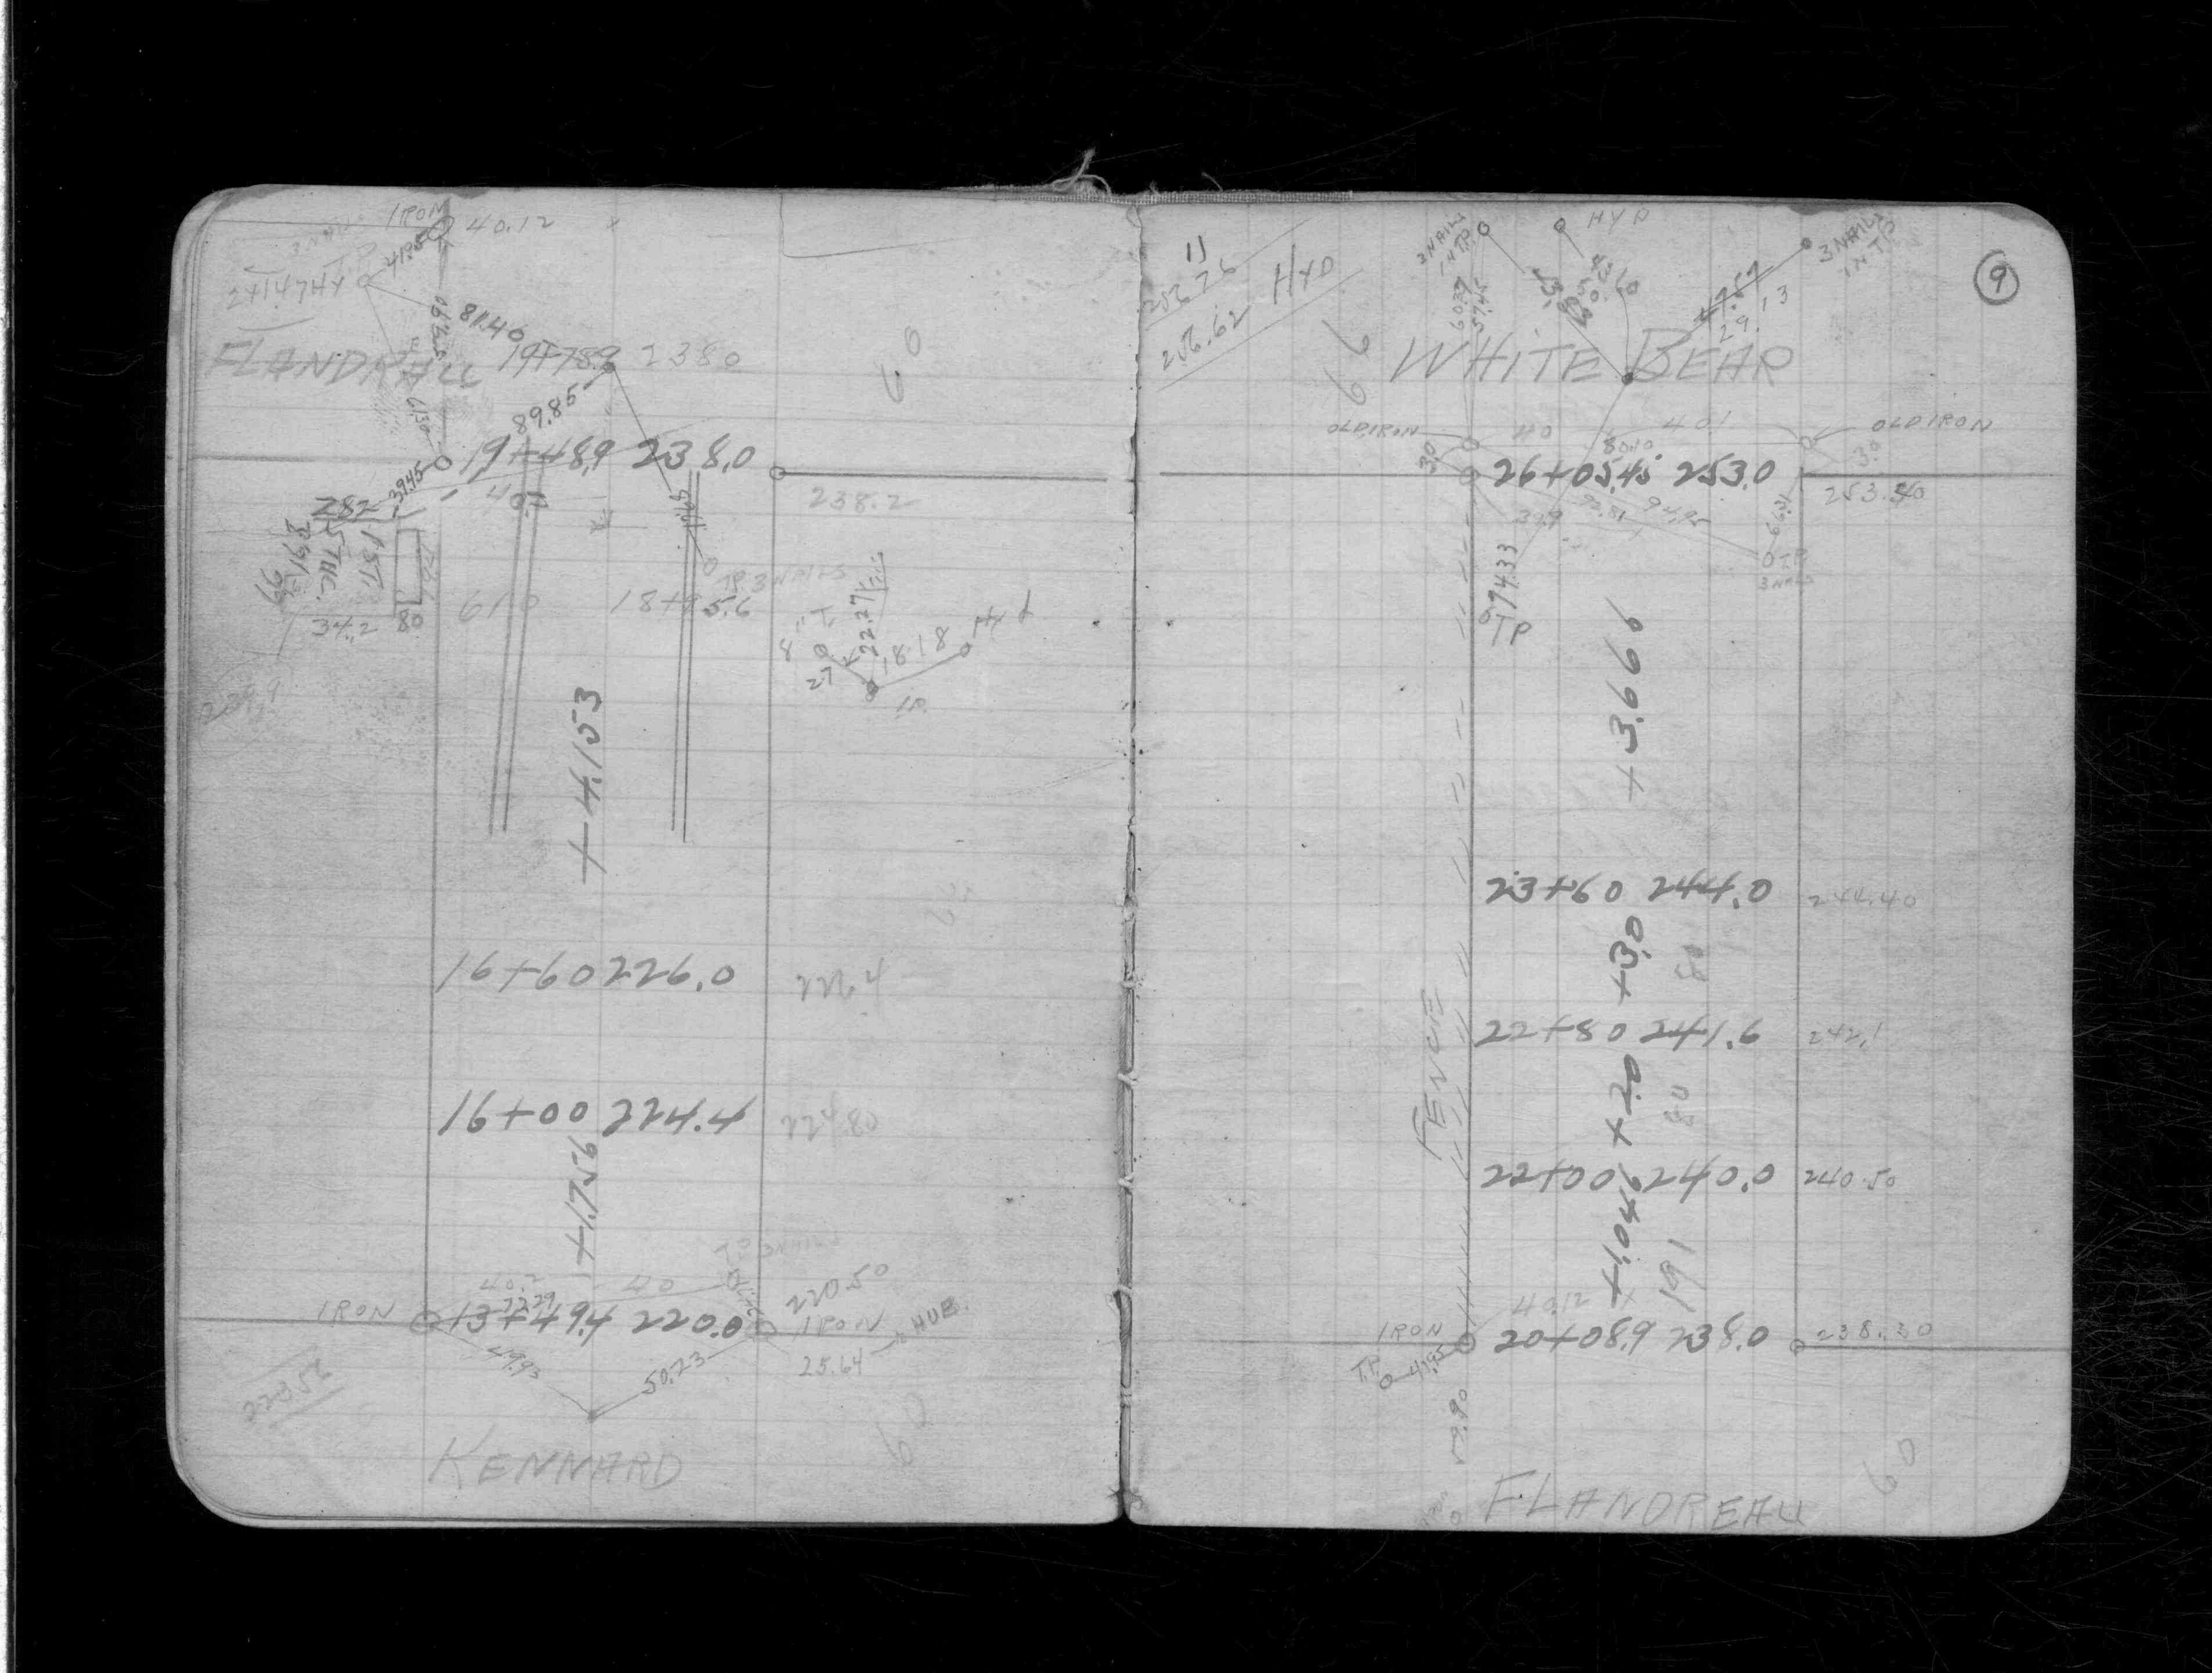 IRON 40.12
3 NAILS
T.P.
41.85
241.47 HY
81.40
FLANDRAU 19+78.9 2380
60
89.85
61.30
19+48.9 238.0
39.45
238.2
282
1 ST.
STUC.
34.2 80
61.0 18+85.6
T.P. 3 NAILS
22.27
18.18
Hyd
8
27
+4.153
16+60 226.0
226.4
16+00 224.4
224.80
+1.756
T.P. 3 NAILS
40.2 40
220.50
IRON 13+49.4 220.0 IRON
HUB
49.93 50.23 25.64
60
KENNARD
11
256.62 HYD
3 NAILS
IN T.P.
HYD
3 NAILS
IN T.P.
9
60.39
57.45
47.67
29.13
66
WHITE BEAR
OLD IRON 40 40.1 OLD IRON
80.10
3.0 26+05.45 253.0 3.0
253.40
39.9 92.81 94.95 66.21
T.P.
3 NAILS
74.33
TP
+3.666
23+60 244.0 244.40
+3.0
80
22+80 241.6 242.1
FENCE
+2.0
80
22+00 240.0 240.50
+1.048
191
40.12
IRON 20+08.9 238.0 238.30
T.P. 47.95
57.90
60
FLANDREAU